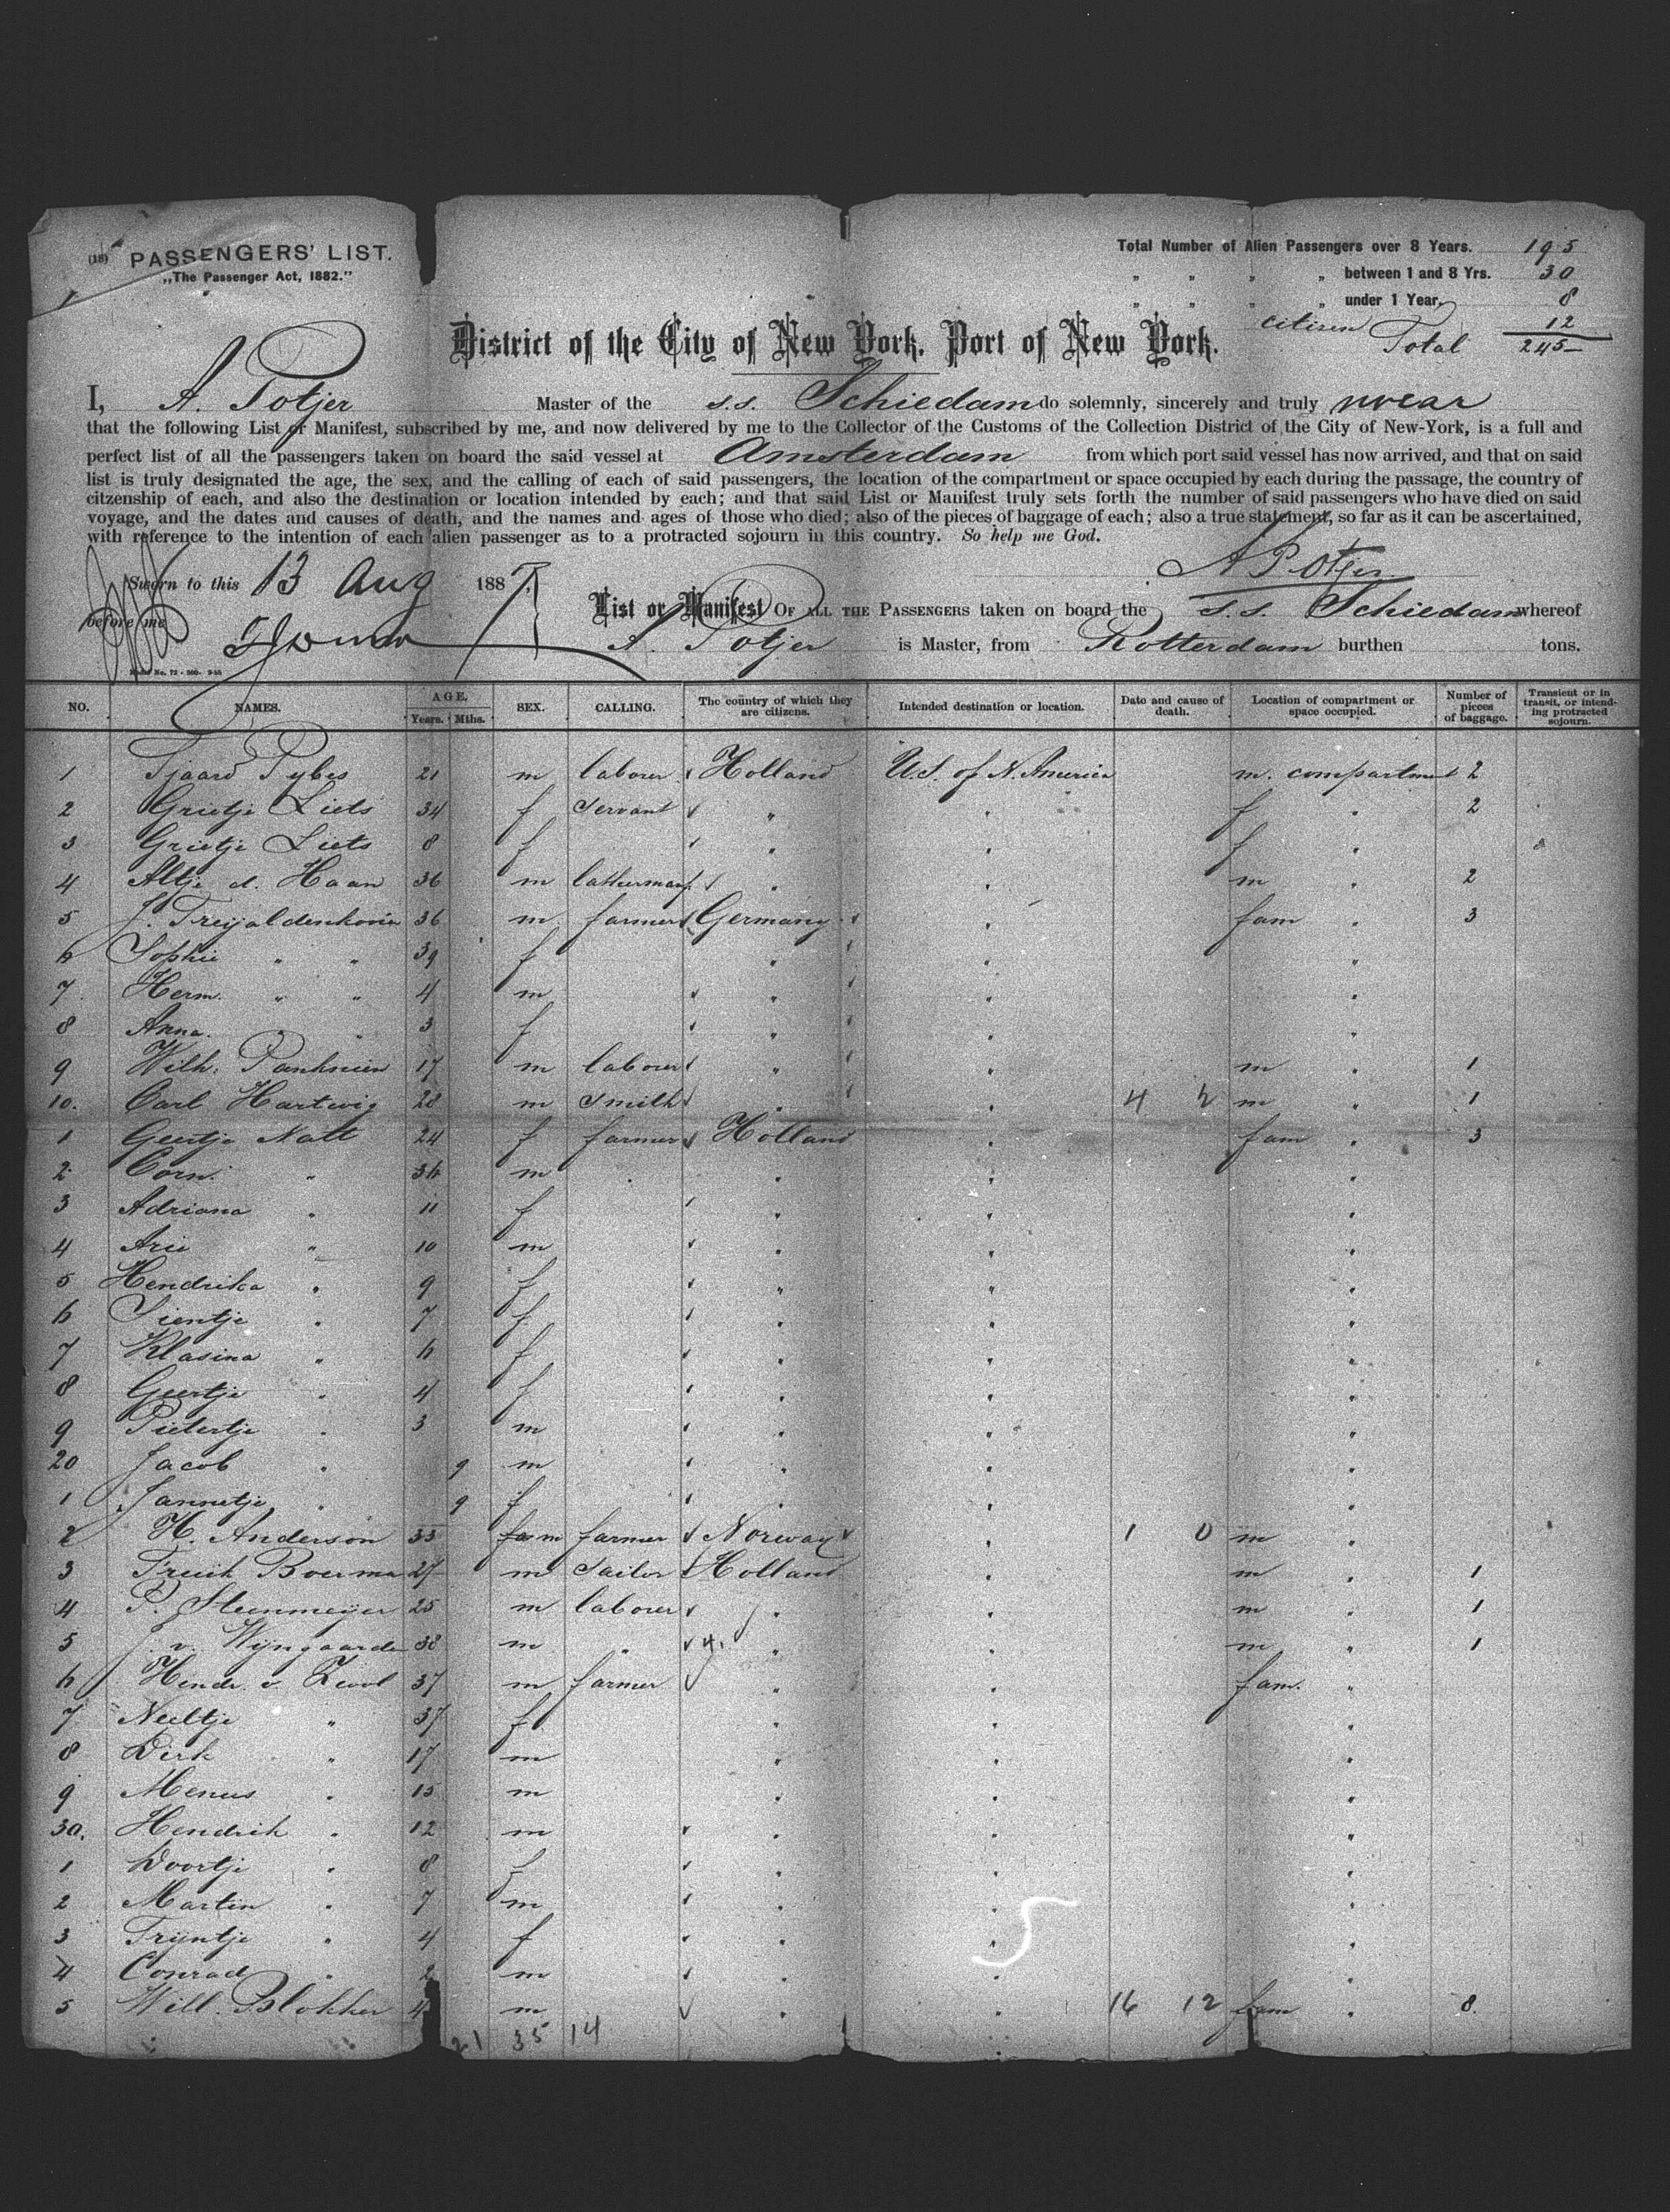 (18) PASSENGERS' LIST.
„The Passenger Act, 1882."
Total Number of Alien Passengers over 8 Years. 195
„ „ „ „ between 1 and 8 Yrs. 30
„ „ „ „ under 1 Year. 8
citizen 12
Total 245
District of the City of New York, Port of New York.
I, A. Potjer Master of the s.s. Schiedam do solemnly, sincerely and truly swear
that the following List or Manifest, subscribed by me, and now delivered by me to the Collector of the Customs of the Collection District of the City of New-York, is a full and
perfect list of all the passengers taken on board the said vessel at Amsterdam from which port said vessel has now arrived, and that on said
list is truly designated the age, the sex, and the calling of each of said passengers, the location of the compartment or space occupied by each during the passage, the country of
citzenship of each, and also the destination or location intended by each; and that said List or Manifest truly sets forth the number of said passengers who have died on said
voyage, and the dates and causes of death, and the names and ages of those who died; also of the pieces of baggage of each; also a true statement, so far as it can be ascertained,
with reference to the intention of each alien passenger as to a protracted sojourn in this country. So help me God.
A Potjer
Sworn to this 13 Aug 1887,
before me
List or Manifest OF ALL THE PASSENGERS taken on board the s.s. Schiedam whereof
A. Potjer is Master, from Rotterdam burthen tons.
NO. NAMES. AGE. Years. Mths. SEX. CALLING. The country of which they are citizens. Intended destination or location. Date and cause of death. Location of compartment or space occupied. Number of pieces of baggage. Transient or in transit, or intending protracted sojourn.
1 Tjaard Pybes 21 m laborer Holland U.S. of N. America m. compartment 2
2 Grietje Liets 34 f servant " " f " 2
3 Grietje Liets 8 f " " f "
4 Altje d. Haan 36 m " " m " 2
5 J. 36 m. farmer Germany " fam " 3
6 Sophie " " 39 f " " "
7 Herm. " " 4 m " " "
8 Anna. " " 3 f " " "
9 Wilh. 17 m laborer " " m " 1
10. Carl Hartwig 28 m smith " " 4 2 m " 1
1 Geertje Natt 24 f farmer Holland " fam " 3
2 Corn. " 36 m " " "
3 Adriana " 11 f " " "
4 Arie " 10 m " " "
5 Hendrika " 9 f " " "
6 Sientje " 7 f " " "
7 Klasina " 6 f " " "
8 Geertje " 4 f " " "
9 Pietertje " 3 m " " "
20 Jacob " 9 m " " "
1 Jannetje " 9 f " " "
2 H. Anderson 33 m farmer Norway " 1 0 m "
3 Boerma 27 m sailor Holland " m " 1
4 P. Steenmeyer 25 m laborer " " m " 1
5 J. v. Wyngaarde 38 m " " " m " 1
6 Hendr. v. Zwol 37 m farmer " " fam. "
7 Neeltje " 37 f " " "
8 Dirk " 17 m " " "
9 Menus " 15 m " " "
30. Hendrik " 12 m " " "
1 Doortje " 8 f " " "
2 Martin " 7 m " " "
3 Tryntje " 4 f " " "
4 Conrad " 2 m " " "
5 Will. Blokker 4 m " " 16 12 fam " 8.
21 35 14
5